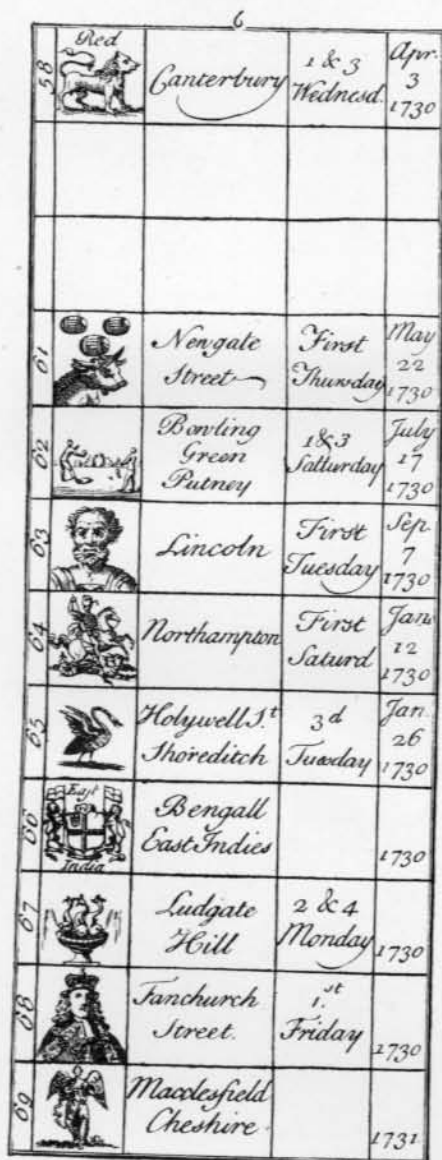 6
58
Red
Canterbury
1 & 3
Wednesd.
Apr.
3
1730
61
Newgate
Street
First
Thursday
May
22
1730
62
Bowling
Green
Putney
1 & 3
Satturday
July
17
1730
63
Lincoln
First
Tuesday
Sep.
7
1730
64
Northampton
First
Saturd
Jan.
12
1730
65
Holywell S.t
Shoreditch
3d
Tuesday
Jan.
26
1730
66
East
India
Bengall
East Indies
1730
67
Ludgate
Hill
2 & 4
Monday
1730
68
Fanchurch
Street.
1.st
Friday
1730
69
Macclesfield
Cheshire
1731